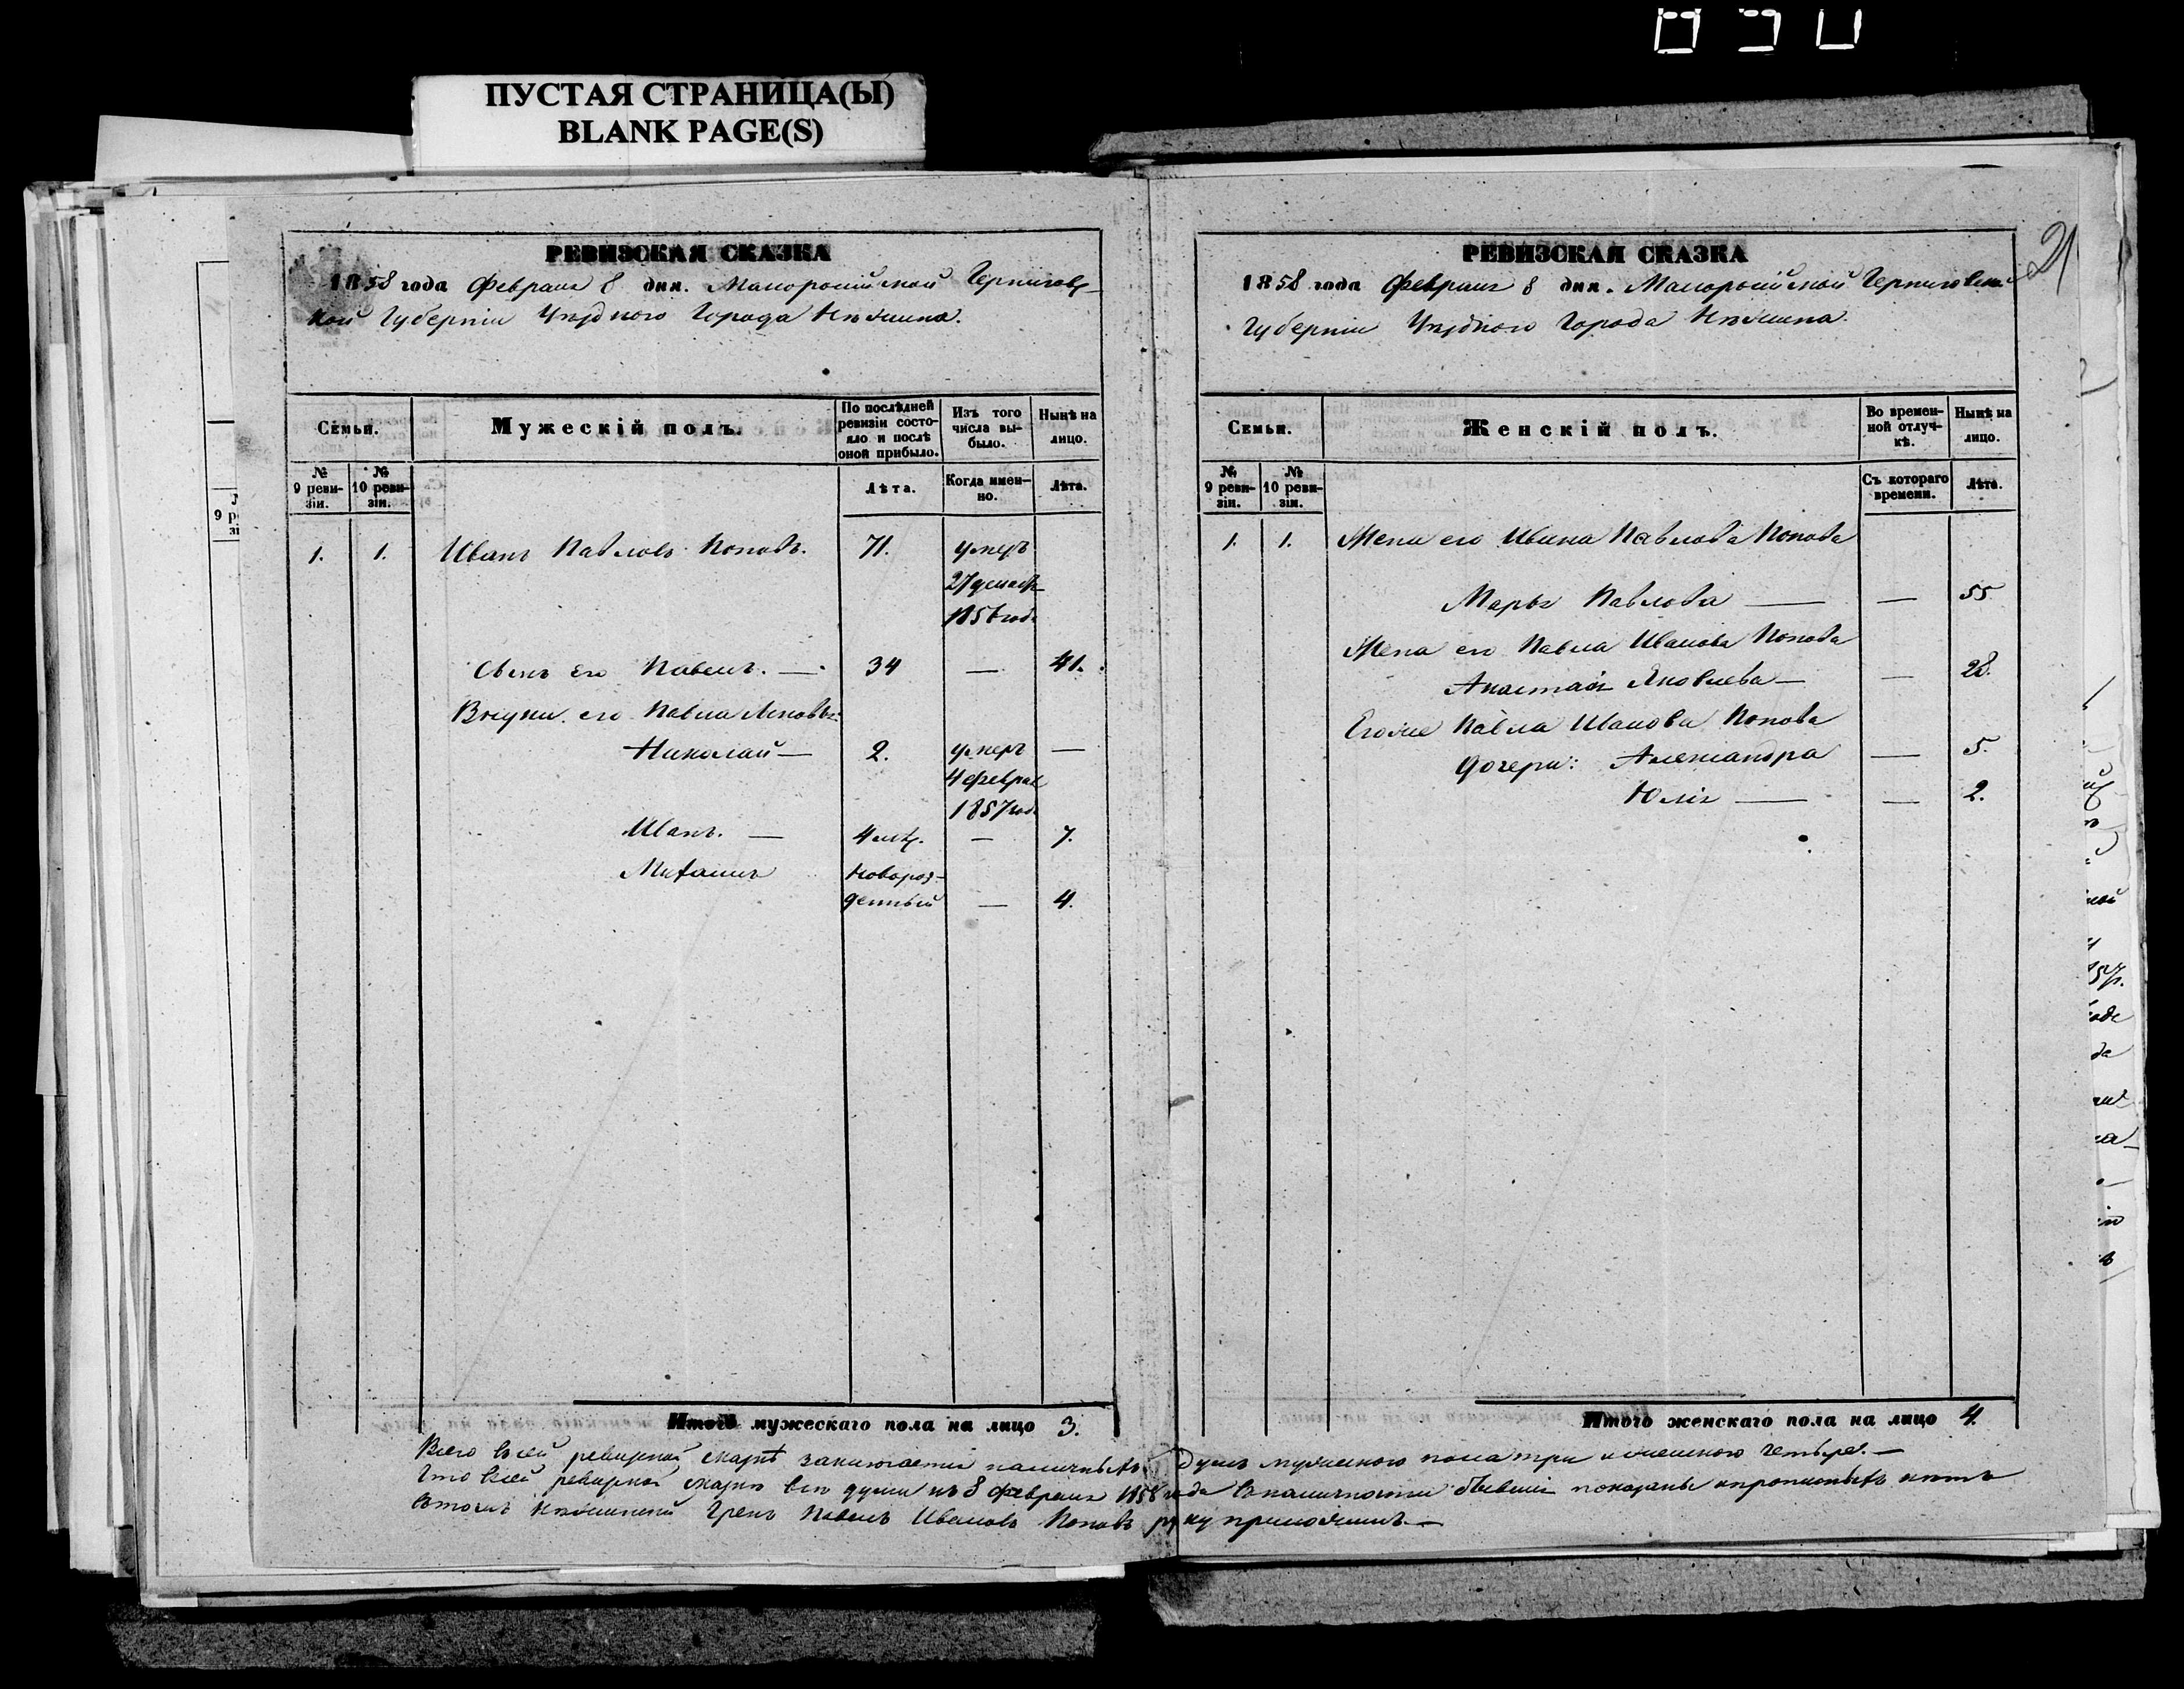 ПУСТАЯ СТРАНИЦА(Ы)
BLANK PAGE(S)
РЕВИЗСКАЯ СКАЗКА
1858 года Февраля 8 дня. Малоросійской Черниговс-
кой Губерніи Уѣзднаго Города Нѣжина.
Семьи.
Мужескій полъ.
По послѣдней ревизіи состояло и послѣ оной прибыло.
Изъ того числа выбыло.
Нынѣ на лицо.
№ 9 ревизіи.
№ 10 ревизіи.
Лѣта.
Когда именно.
Лѣта.
1. 1. Иванъ Павловъ Поповъ. 71. умеръ
27 декабр
1856 год.
Сынъ его Павелъ. — 34 — 41.
Внуки его Павла
Николай — 2. умеръ —
4 феврал
1857 год.
Иванъ. — 4 мѣс. — 7.
Михаилъ новорож-
денный — 4.
Итого мужескаго пола на лицо 3.
РЕВИЗСКАЯ СКАЗКА
21
1858 года Февраля 8 дня. Малоросійской Черниговской
Губерніи Уѣзднаго Города Нѣжина.
Семьи.
Женскій полъ.
Во временной отлучкѣ.
Нынѣ на лицо.
№ 9 ревизіи.
№ 10 ревизіи.
Съ котораго времени.
Лѣта.
1. 1. Жена его Ивана Павлова Попова
Марья Павлова — — 55
Жена его Павла Иванова Попова
Анастасія Яковлева — — 28.
Егоже Павла Иванова Попова
дочери: Александра — 5.
Юлія — — 2.
Итого женскаго пола на лицо 4.
Всего въ сей ревизской сказкѣ заключается наличныхъ душъ мужескаго пола три и женскаго четыре. —
Что въ сей ревизской сказкѣ всѣ души къ 8 Февраля 1858 года въ наличности бывшіе показаны и прописныхъ нѣтъ
въ томъ Нѣжинскій Грекъ Павелъ Ивановъ Поповъ руку приложилъ. —